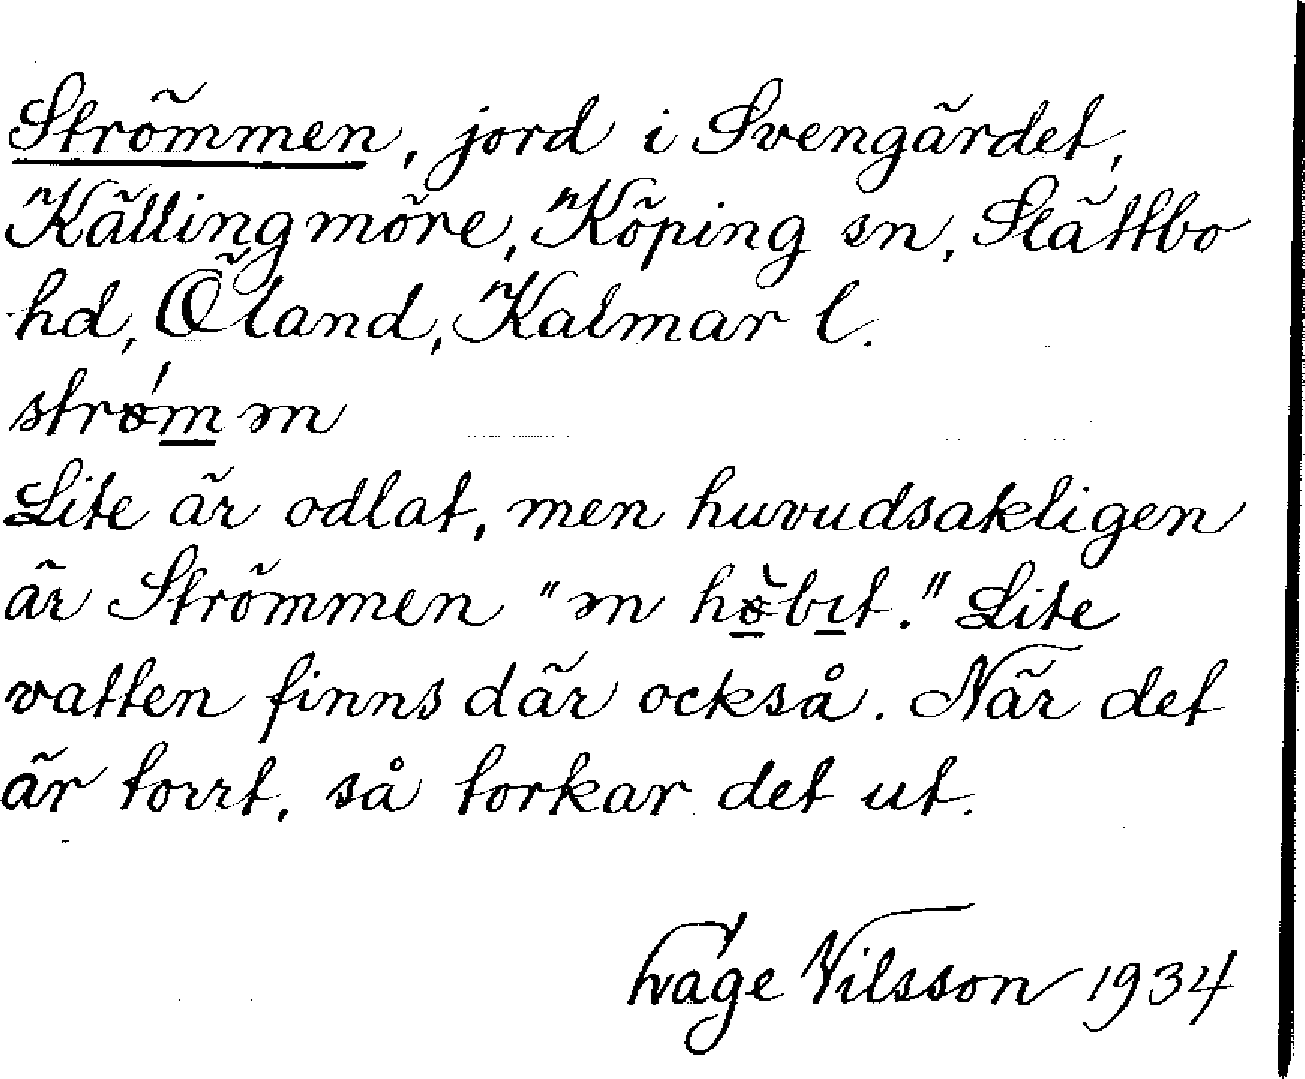 Strömmen, jord i Svengärdet,
Källingmöre, Köping sn, Slättbo
hd, Öland, Kalmar l.
strǿm ən
Lite är odlat, men huvudsakligen
är Strömmen "ən hø̀bıt." Lite
vatten finns där också. När det
är torrt, så torkar det ut.
Nilsson 1934